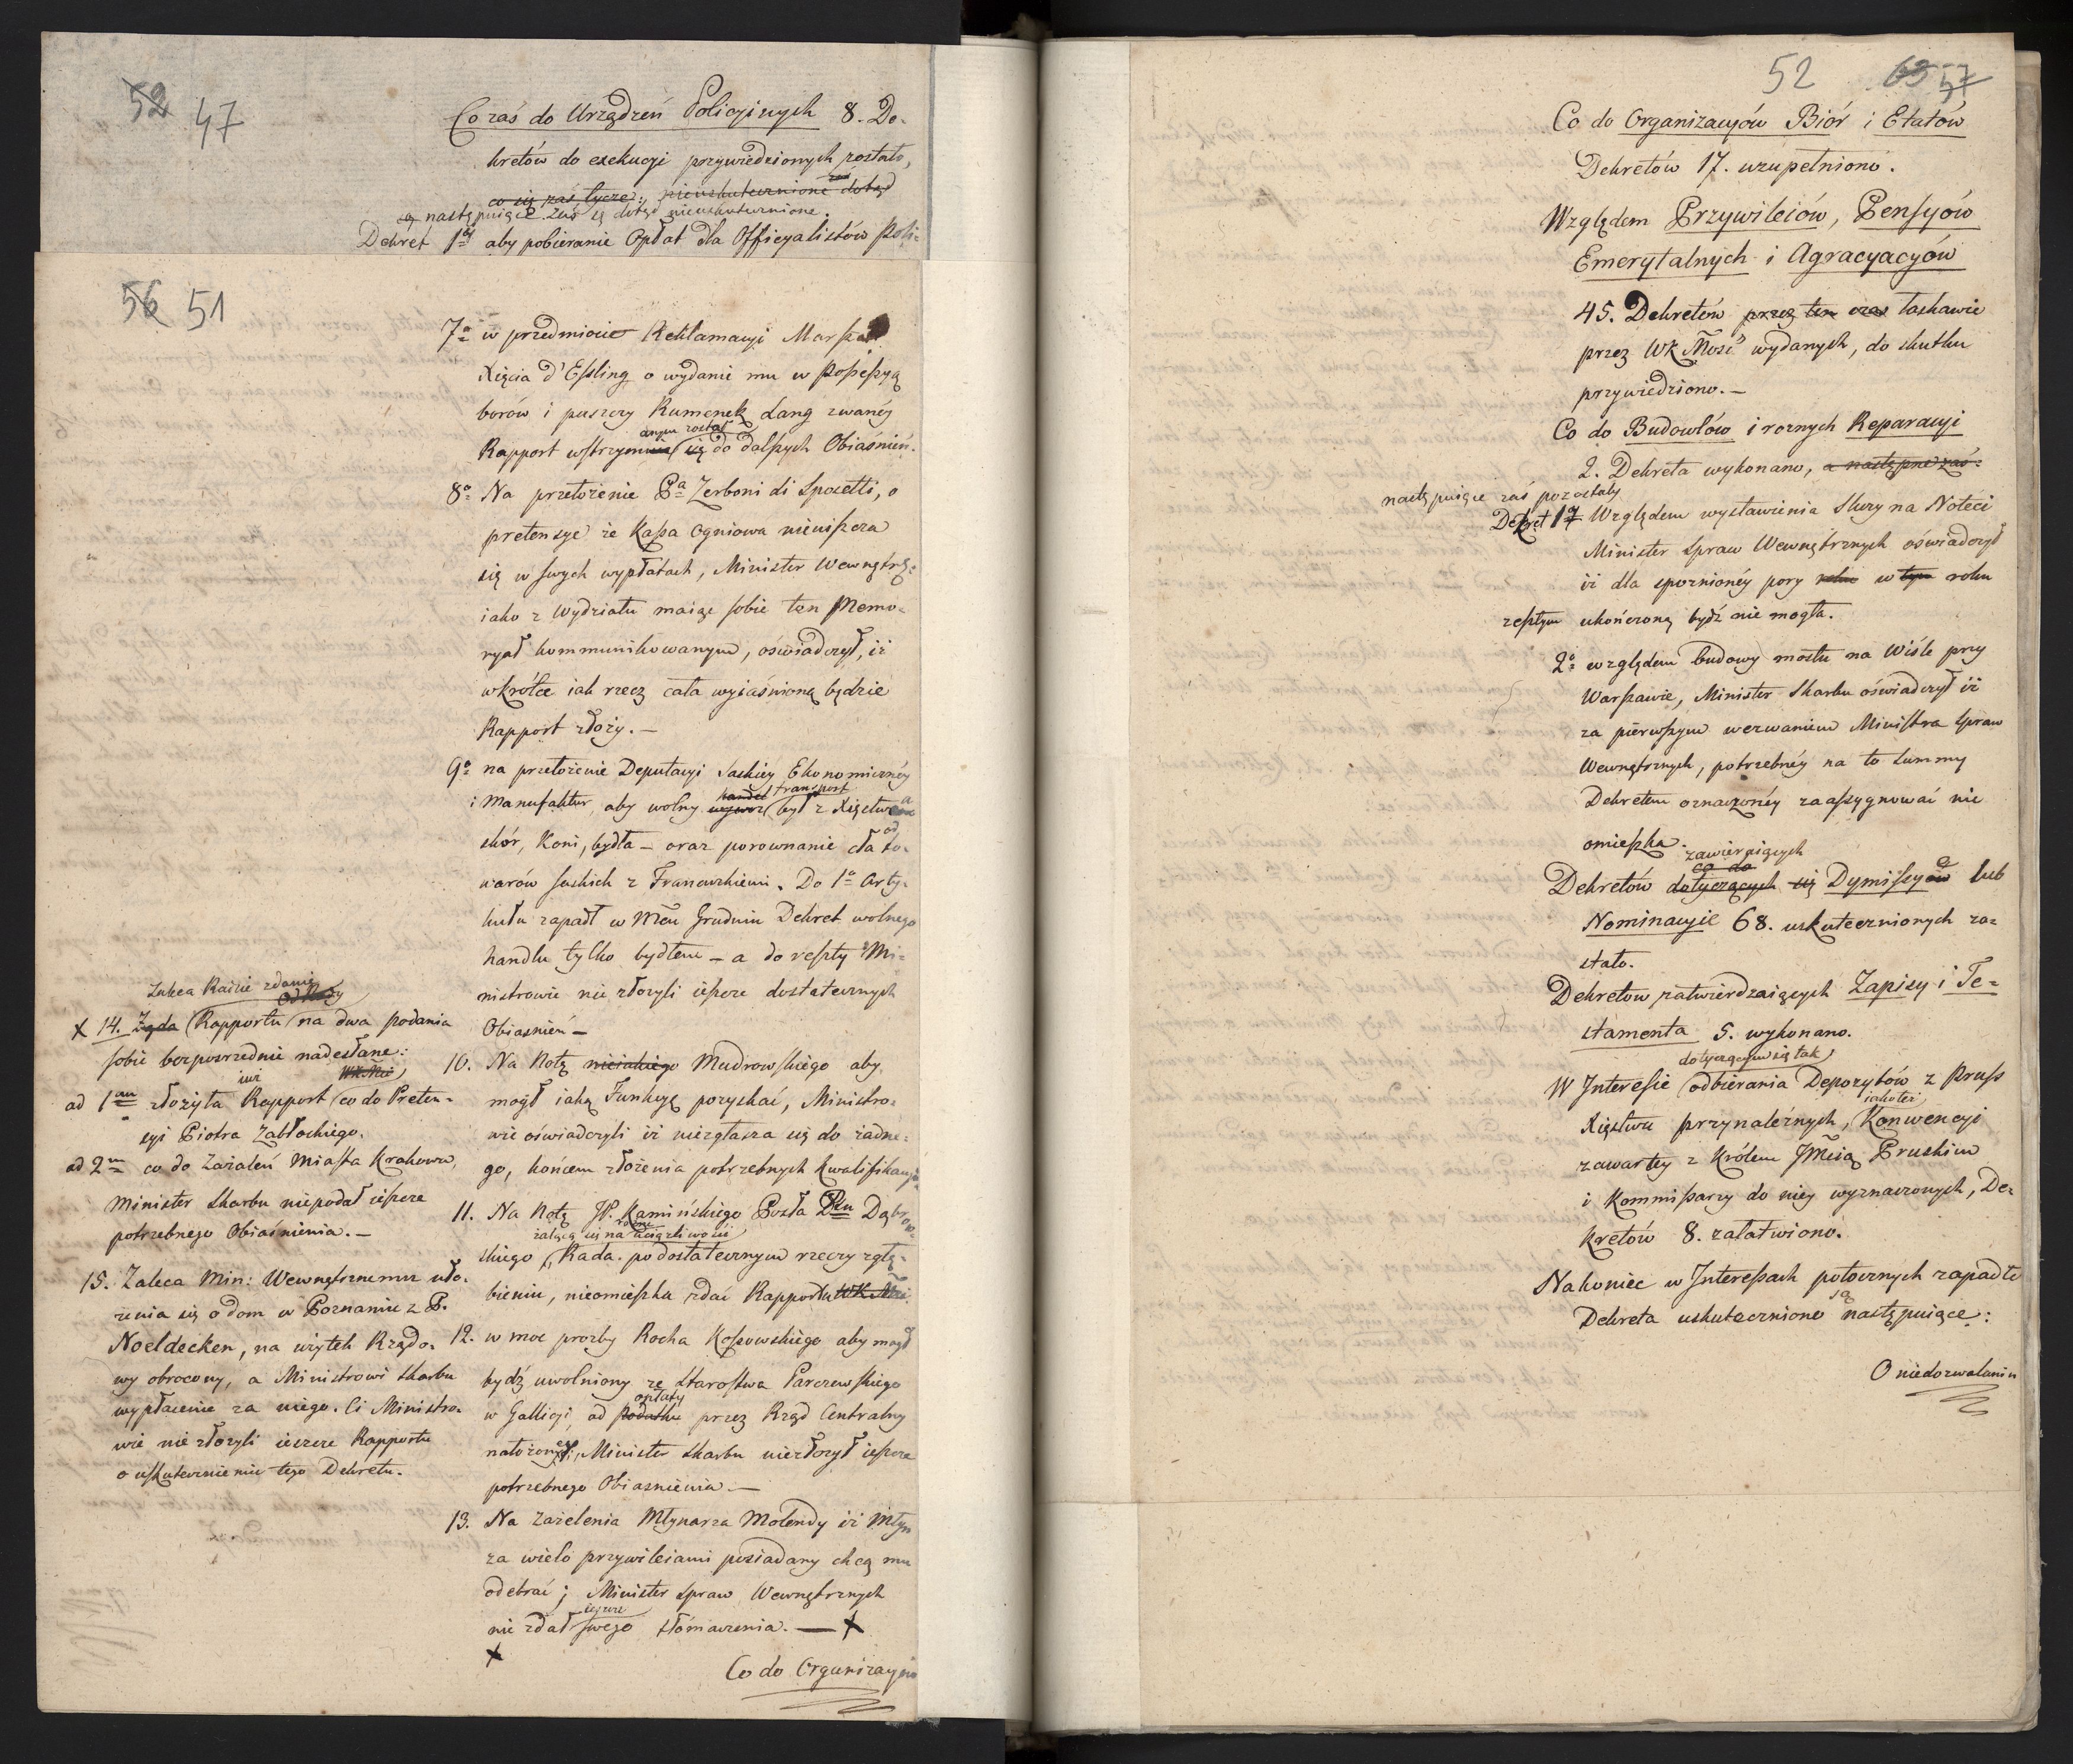 52 47
Co zaś do Urządzeń Policyinych 8. De-
kretów do exekucyi przywiedzionych zostało,
co się zaś tycze: nieuskutecznione dotąd
następuiące zaś są dotąd nieuskutecznione.
Dekret 1y aby pobieranie Opłat dla Officyalistów Poli-
56 51
7o w przedmiocie Reklamacyi Marszał
Xięcia d'Essling o wydanie mu w Possessyą
borów i puszczy Rumenek Lang zwanéy
anym został
Rapport wstrzym się do dalszych Obiaśnień.
8o Na przełożenie Pa Zerboni di Sposetti, o
pretensye że Kassa Ogniowa nieuiszcza
się w swych wypłatach, Minister Wewnętrz:
iako z Wydziału maiąc sobie ten Memo-
ryał kommunikowanym, oświadczył, iż
wkrótce iak rzecz cała wyiaśnioną będzie
Rapport złoży. —
9o na przełożenie Deputacyi Saskiey Ekonomicznéy
handel transport
i Manufaktur, aby wolny wywoz był z Xięstwa
skór, Koni, bydła — oraz porownanie cła od to-
warów saskich z Francuzkiemi. Do 1o Arty-
kułu zapadł w Mcu Grudniu Dekret wolnego
handlu tylko bydłem — a do reszty Mi-
nistrowie nie złożyli ieszcze dostatecznych
Obiasnień —
10. Na Notę nieiakiego Mudrowskiego aby
mogł iaką Funkcyę pozyskać, Ministro-
wie oświadczyli iż niezgłasza się do żadne-
go, końcem złożenia potrzebnych kwalifikacyi
11. Na Notę JP. Kamińskiego Posła Ptu Dąbrow-
żalącą się na różne uciążliwości
skiego, Rada po dostatecznym rzeczy zgłę-
bieniu, nieomieszka zdać Rapportu WKMci
12. w moc prozby Rocha Kossowskiego aby mogł
bydź uwolniony ze Starostwa Parczewskiego
opłaty
w Gallicyi od podatku przez Rząd Centralny
nałożonéy, Minister Skarbu niezłożył ieszcze
potrzebnego Obiasnienia. —
13. Na Zażelenia Młynarza Molendy iż Młyn
za wielo przywileiami posiadany chcą mu
odebrać; Minister Spraw Wewnętrznych
ieszcze
nie zdał swego tłómaczenia. — X
X
Co do Organizacyiów
Zaleca Radzie zdanie
od Rady
X 14. Żąda Rapportu na dwa podania
sobie bezpośrednie nadesłane:
iuż WKMci
ad 1um złożyła Rapport co do Preten-
syi Piotra Zabłockiego.
ad 2m co do Zażaleń Miasta Krakowa,
Minister Skarbu niepodał ieszcze
potrzebnego Obiaśnienia. —
15. Zaleca Min: Wewnętrznemu uło-
żenia się o dom w Poznaniu z P.
Noeldecken, na użytek Rządo-
wy obrocony, a Ministrowi Skarbu
wypłacenie za niego. Ci Ministro-
wie nie złożyli ieszcze Rapportu
o uskutecznieniu tego Dekretu.
52 63 57
Co do Organizacyów Biór i Etatów
Dekretów 17. uzupełniono.
Względem Przywileiów, Pensyów
Emerytalnych i Agracyacyów
45. Dekretów przez ten czas łaskawie
przez WK Mość wydanych, do skutku
przywiedziono. —
Co do Budowlów i roznych Reparacyi
2. Dekreta wykonano, a następne zaś:
następuiące zaś pozostały
Dekret 1y Względem wystawienia Sluzy na Noteci
Minister Spraw Wewnętrznych oświadczył
iż dla spoznionéy pory roku w tym roku
zeszłym ukończoną bydź nie mogła.
2o względem budowy mostu na Wiśle przy
Warszawie, Minister Skarbu oświadczył iż
za pierwszym wezwaniem Ministra Spraw
Wewnętrznych, potrzebnéy na to Summy
Dekretem oznaczonéy zaassygnować nie
omieszka.
zawieraiących
co do
Dekretów dotyczących się Dymissye lub
Nominacyie 68. uskutecznionych zo-
stało.
Dekretow zatwierdzaiących Zapisy i Te-
stamenta 5. wykonano.
dotyczącym się tak
W Interesie odbierania Depozytów z Pruss
iakoteż
Xięstwu przynależnych, Konwencyi
zawartey z Królem JMcią Pruskim
i Kommissarzy do niey wyznaczonych, De-
kretów 8. załatwiono.
Nakoniec w Interessach potocznych zapadłe
są
Dekreta uskutecznione następuiące:
O niedozwalaniu